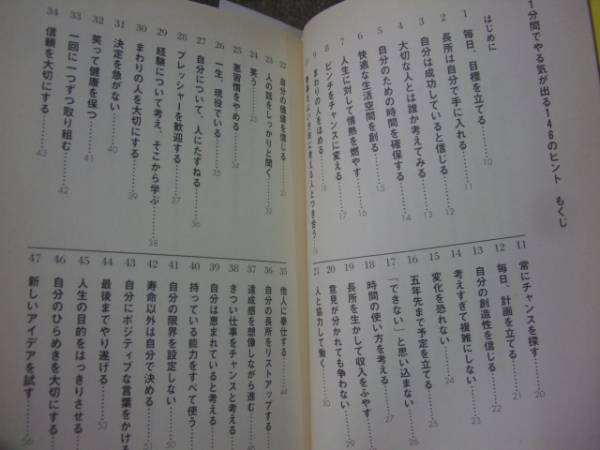 1分間でやる気が出る146のヒント もくじ
はじめに
1 毎日、目標を立てる 10
2 長所は自分で手に入れる 11
3 自分は成功していると信じる 12
4 大切な人とは誰か考えてみる 13
5 自分のための時間を確保する 14
6 快適な生活空間を創る 15
7 人生に対して情熱を燃やす 16
8 ピンチをチャンスに変える 17
9 まわりの人をほめる 18
考える人とつき合う 19
11 常にチャンスを探す 20
12 毎日、計画を立てる 21
13 自分の創造性を信じる 22
14 考えすぎて複雑にしない 23
15 変化を恐れない 24
16 五年先まで予定を立てる 25
17 「できない」と思い込まない 26
18 時間の使い方を考える 27
19 長所を生かして収入をふやす 28
20 意見が分かれても争わない 29
21 人と協力して働く 30
22 自分の価値を信じる 31
23 人の話をしっかりと聞く 32
24 笑う 33
25 悪習慣をやめる 34
26 一生、現役でいる 35
27 自分について、人にたずねる 36
28 プレッシャーを歓迎する 37
29 経験について考え、そこから学ぶ 38
30 まわりの人を大切にする 39
31 決定を急がない 40
32 笑って健康を保つ 41
33 一回に一つずつ取り組む 42
34 信頼を大切にする 43
35 他人に奉仕する 44
36 自分の長所をリストアップする
37 達成感を想像しながら進む
38 きつい仕事をチャンスと考える
39 自分は恵まれていると考える
40 持っている能力をすべて使う
41 自分の限界を設定しない
42 寿命以外は自分で決める
43 自分にポジティブな言葉をかける
44 最後までやり遂げる 53
45 人生の目的をはっきりさせる
46 自分のひらめきを大切にする
47 新しいアイデアを試す 56